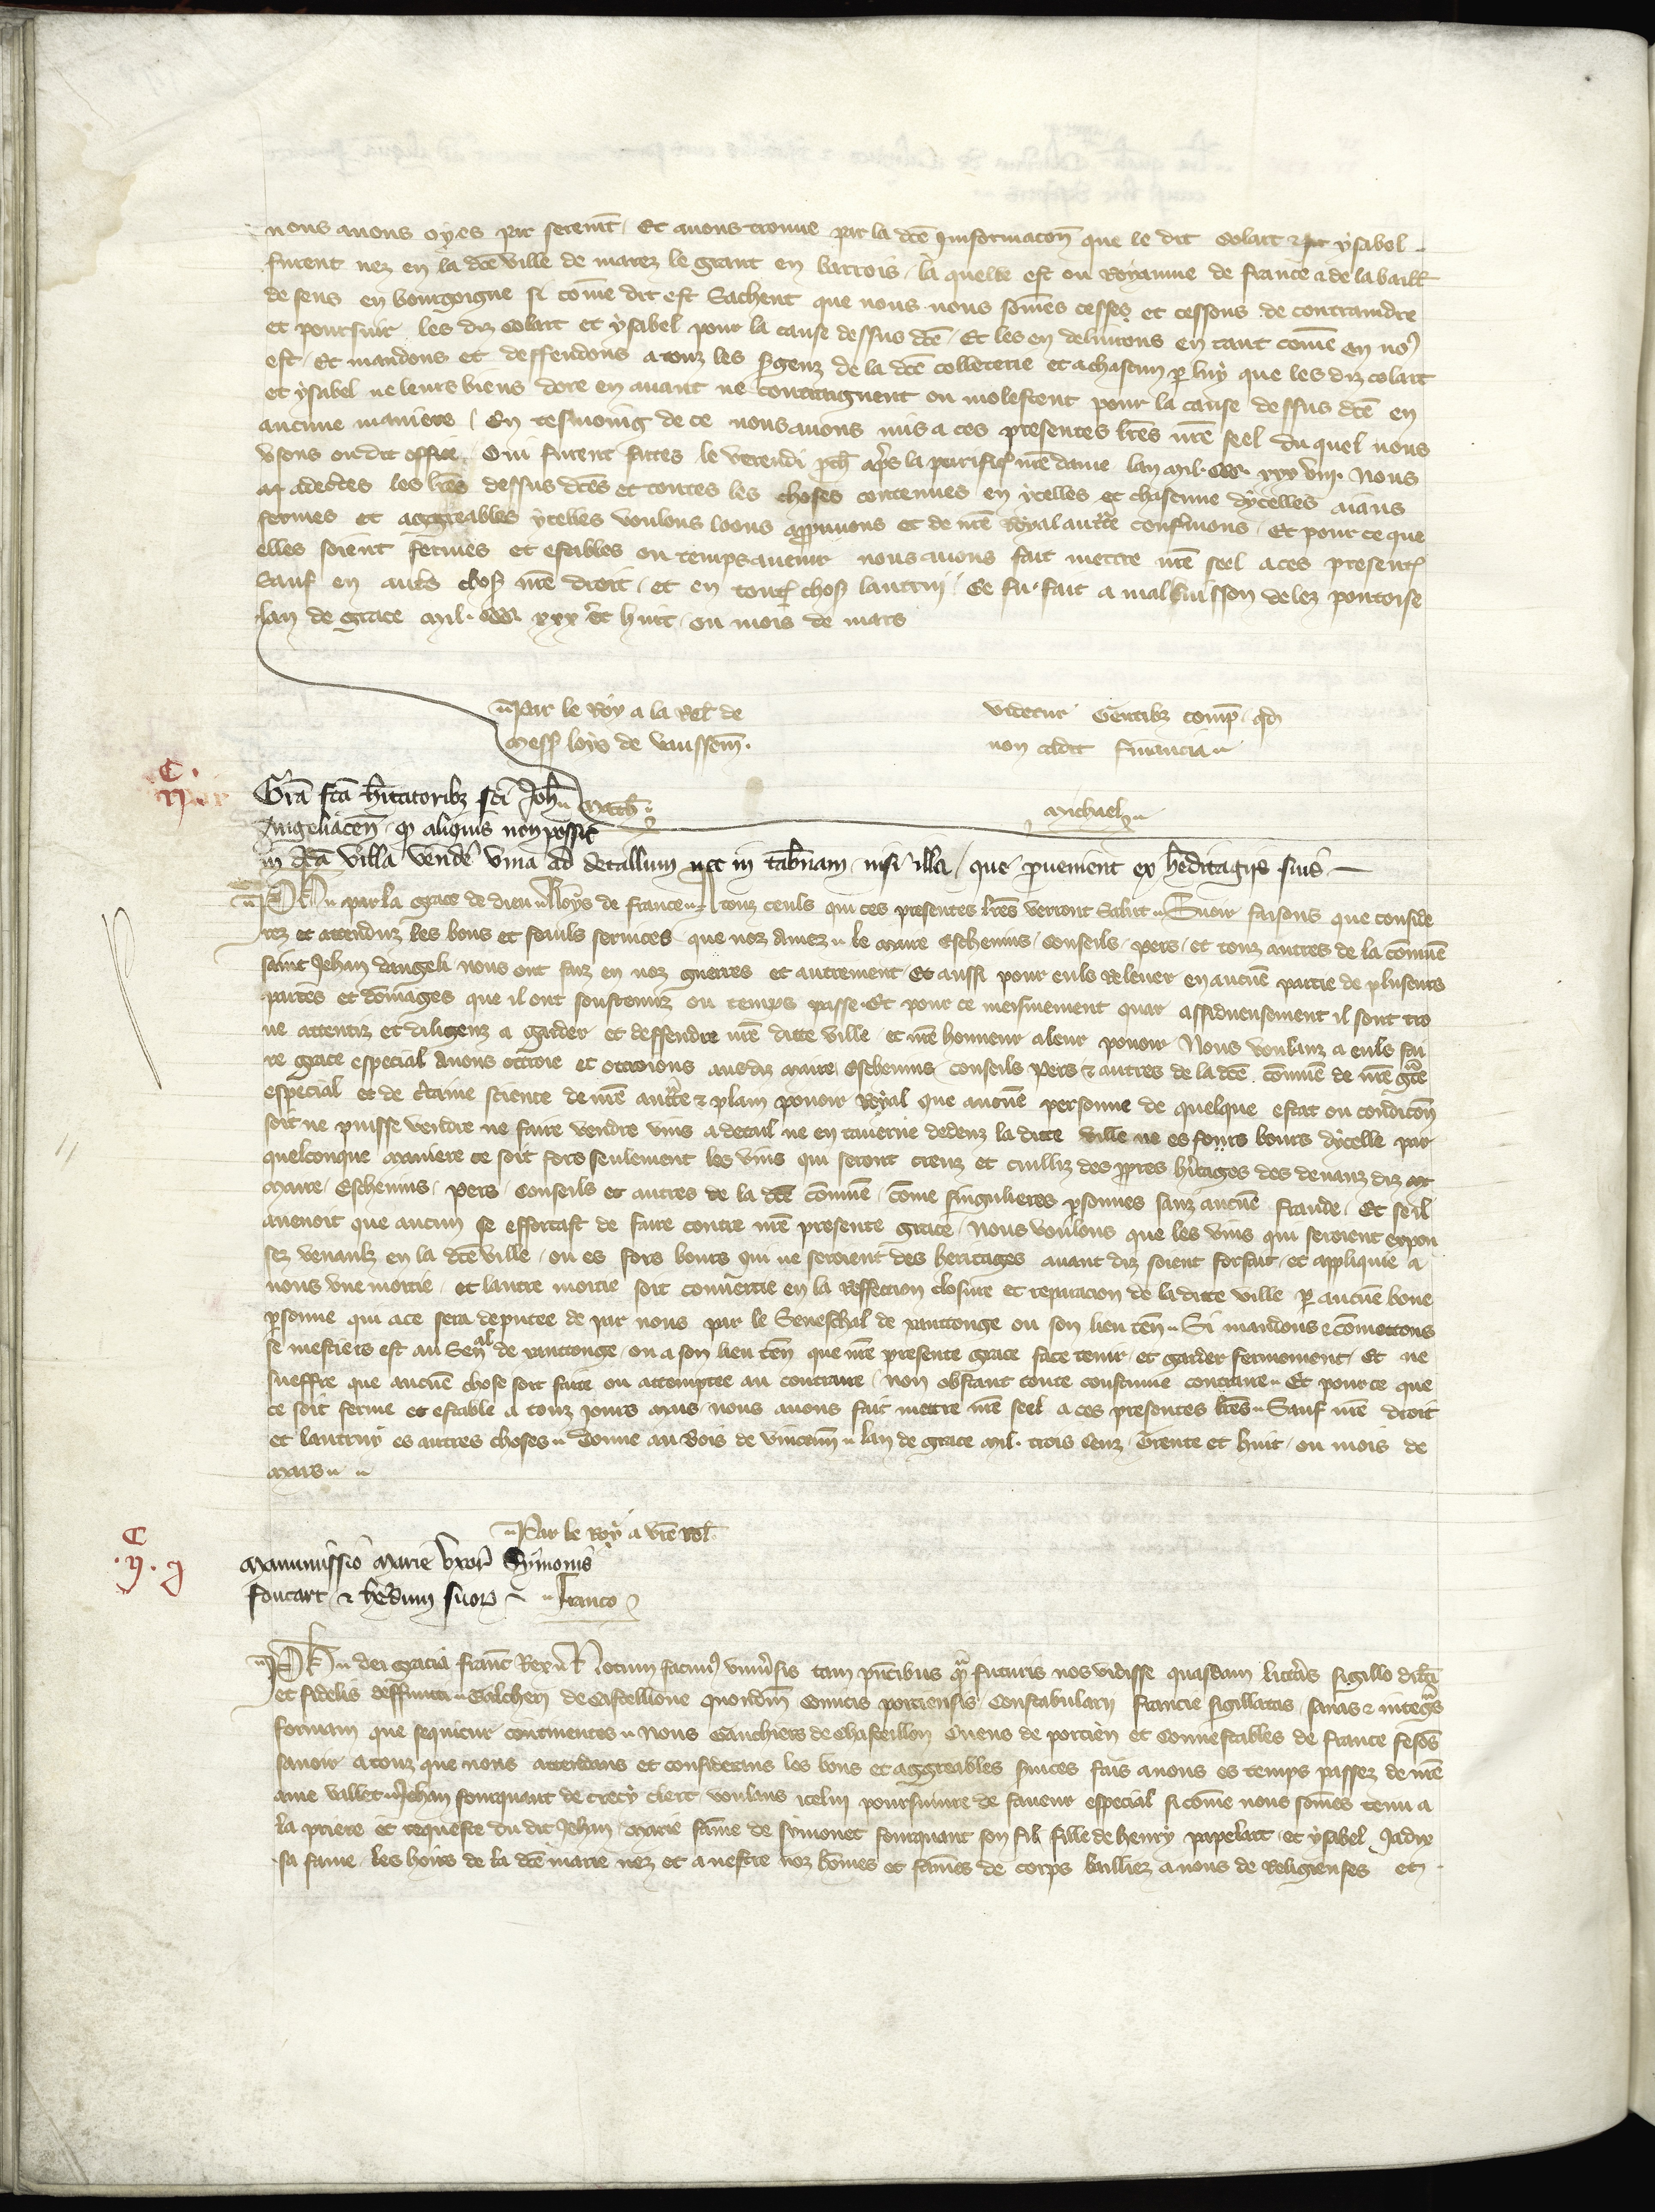 nous auons oyes par serement Et auons trouue par la dce Informacon que le dit Colart & ysabel
furent nez en la dce ville de marez le grant en barrois la quelle est ou Royaume de france & de la baill
de sens en bourgoigne si come dit est Sachent que nous nous somes cesses et cessons de contraindre
et poursuir les diz Colart et ysabel pour la cause dessus dce Et les en deliurons en tant come en nous
est Et mandons et deffendons a touz les sergenz de la dce colleterie et a chascun par luy que les diz colart
et ysabel ne leurs biens dore en auant ne contraignent ou molestent pour la cause dessus dce en
aucune maniere En tesmoing de ce nous auons mis a ces presentes lres nre seel du quel nous
vsons ou dit office Qui furent faites le vendredi apres la purificacion nre dame lan mil. CCC. xxx viij. Nous
adecertes les lres dessus dces et toutes les choses contenues en ycelles et chascune dycelles aians
fermes et aggreables ycelles voulons loons approuuons et de nre Royal auctte confermons Et pour ce que
elles soient fermes et estables ou temps auenir nous auons fait mettre nre seel a ces presentes
Sauf en autres choses nre droit et en toutes choses lautrui Ce fu fait a malbuisson delez pontoise
lan de grace mil. CCC. xxx et huit ou mois de mars
Par le Roy a la Rel de
mess loys de vaussem.
videtur Gentibz comp. qd
non cadit financia
Gra fca habitatoribz sci Joh
Angeliacen. qd aliquis non possit
michael
in dca villa vendere vina ad detallum nec in tabernam nisi illa que proueniunt ex hereditagiis suis
Ph par la grace de dieu Roys de france A touz ceuls qui ces presentes lres verront Salut Sauoir faisons que conside
rez et attenduz les bons et feauls seruices que noz Amez le Maire Escheuins Conseils pers et touz autres de la comune
saint Jehan dangeli nous ont faiz en noz guerres et autrement Et aussi pour euls releuer en aucune partie de pluseurs
pertes et domages que il ont soustenuz ou temps passe Et pour ce meismement quar assiduensement il sont tro
ue attentiz et diligenz a garder et deffendre nre ditte ville et nre honneur a leur pouoir Nous voulanz a euls fai
re grace especial Auons ottroie et ottroions aus diz maire Escheuins Conseils Pers & autres de la dce comune de nre grace
especial et de certaine science de nre auctte & plain pouoir Royal que aucune personne de quelque estat ou condicion
soit ne puisse vendre ne faire vendre vins a detail ne en tauerne dedenz la ditte ville ne es fours bours dycelle par
quelconque maniere ce soit fors seulement les vins qui seront creuz et cuilliz des propres heritages des deuanz diz
maire Escheuins Pers Conseils et autres de la dce comune Come singulieres personnes sanz aucune fraude Et se il
auenoit que aucun se efforcast de faire contre nre presente grace Nous voulons que les vins qui seroient expou
sez venaulz en la dce ville ou es fors bours qui ne seroient des heritages auant diz soient forfait et appliquie a
nous vne moitie et lautre moitie soit conuertie en la Reffection closure et reparacion de la ditte ville par aucune bone
personne qui a ce sera deputee de par nous par le Seneschal de xanttonge ou son lieu ten Si mandons & comettons
se mestiers est au Senal de xanttonge ou a son lieu ten que nre presente grace face tenir et garder fermement Et ne
sueffre que aucune chose soit faite ou attemptee au contraire non obstant toute coustume contraire Et pour ce que
ce soit ferme et estable a touz jours mais nous auons fait mettre nre seel a ces presentes lres Sauf nre droit
et lautruy es autres choses Donne au Bois de vincenn lan de grace mil. trois Cenz Trente et huit ou mois de
mars
Par le Roy a vre Rel.
Manumissio Marie Vxoris Symonis
foucart & heredum suorum
franco
Ph dei gracia francorum Rex Notum facimus vniuersis tam presentibus quam futuris nos vidisse quasdam litteras sigillo dilecti
et fidelis deffuncti Galcheri de Castellione quondam Comitis porciensis Constabularii francie sigillatas sanas & integras
formam que sequitur continentes Nous Gauchiers de Chasteillon Cuens de porcien et Connestables de france fesons
sauoir a touz que nous attendans et considerans les bons et aggreables seruices fais a nous es temps passez de nre
ame vallet Jehan fouquart de crecy clerc voulans icelui poursuiure de faueur especial si come nous somes tenu a
la priere et requeste du dit Jehan Marie fame de symonet fouquart son fil fille de henry papelart et ysabel Jadix
sa fame les hoirs de la dce marie nez et a nestre noz homes et fames de corps bailliez a nous de Religieuses et